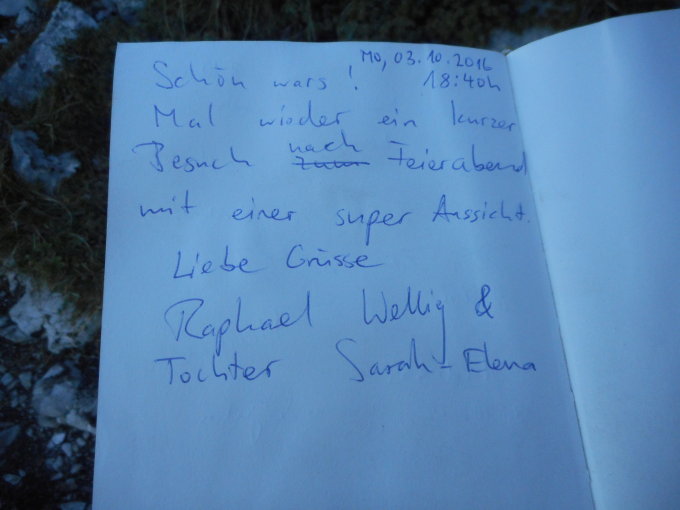 Mo, 03.10.2016
Schön wars! 18:40h
Mal wieder ein kurzer
Besuch zum nach Feierabend
mit einer super Aussicht.
Liebe Grüsse
Raphael Wellig &
Tochter Sarah-Elena